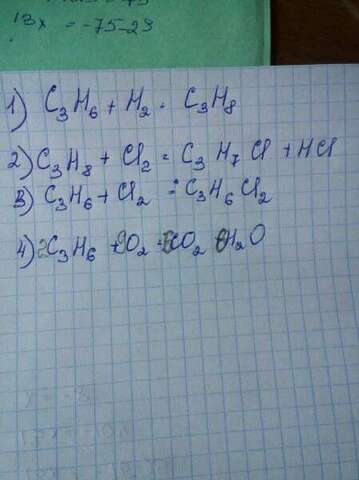 13x = -75-23
1) C₃H₆ + H₂ = C₃H₈
2) C₃H₈ + Cl₂ = C₃H₇Cl + HCl
3) C₃H₆ + Cl₂ = C₃H₆Cl₂
4) 2C₃H₆ + 9O₂ = 6CO₂ 6H₂O